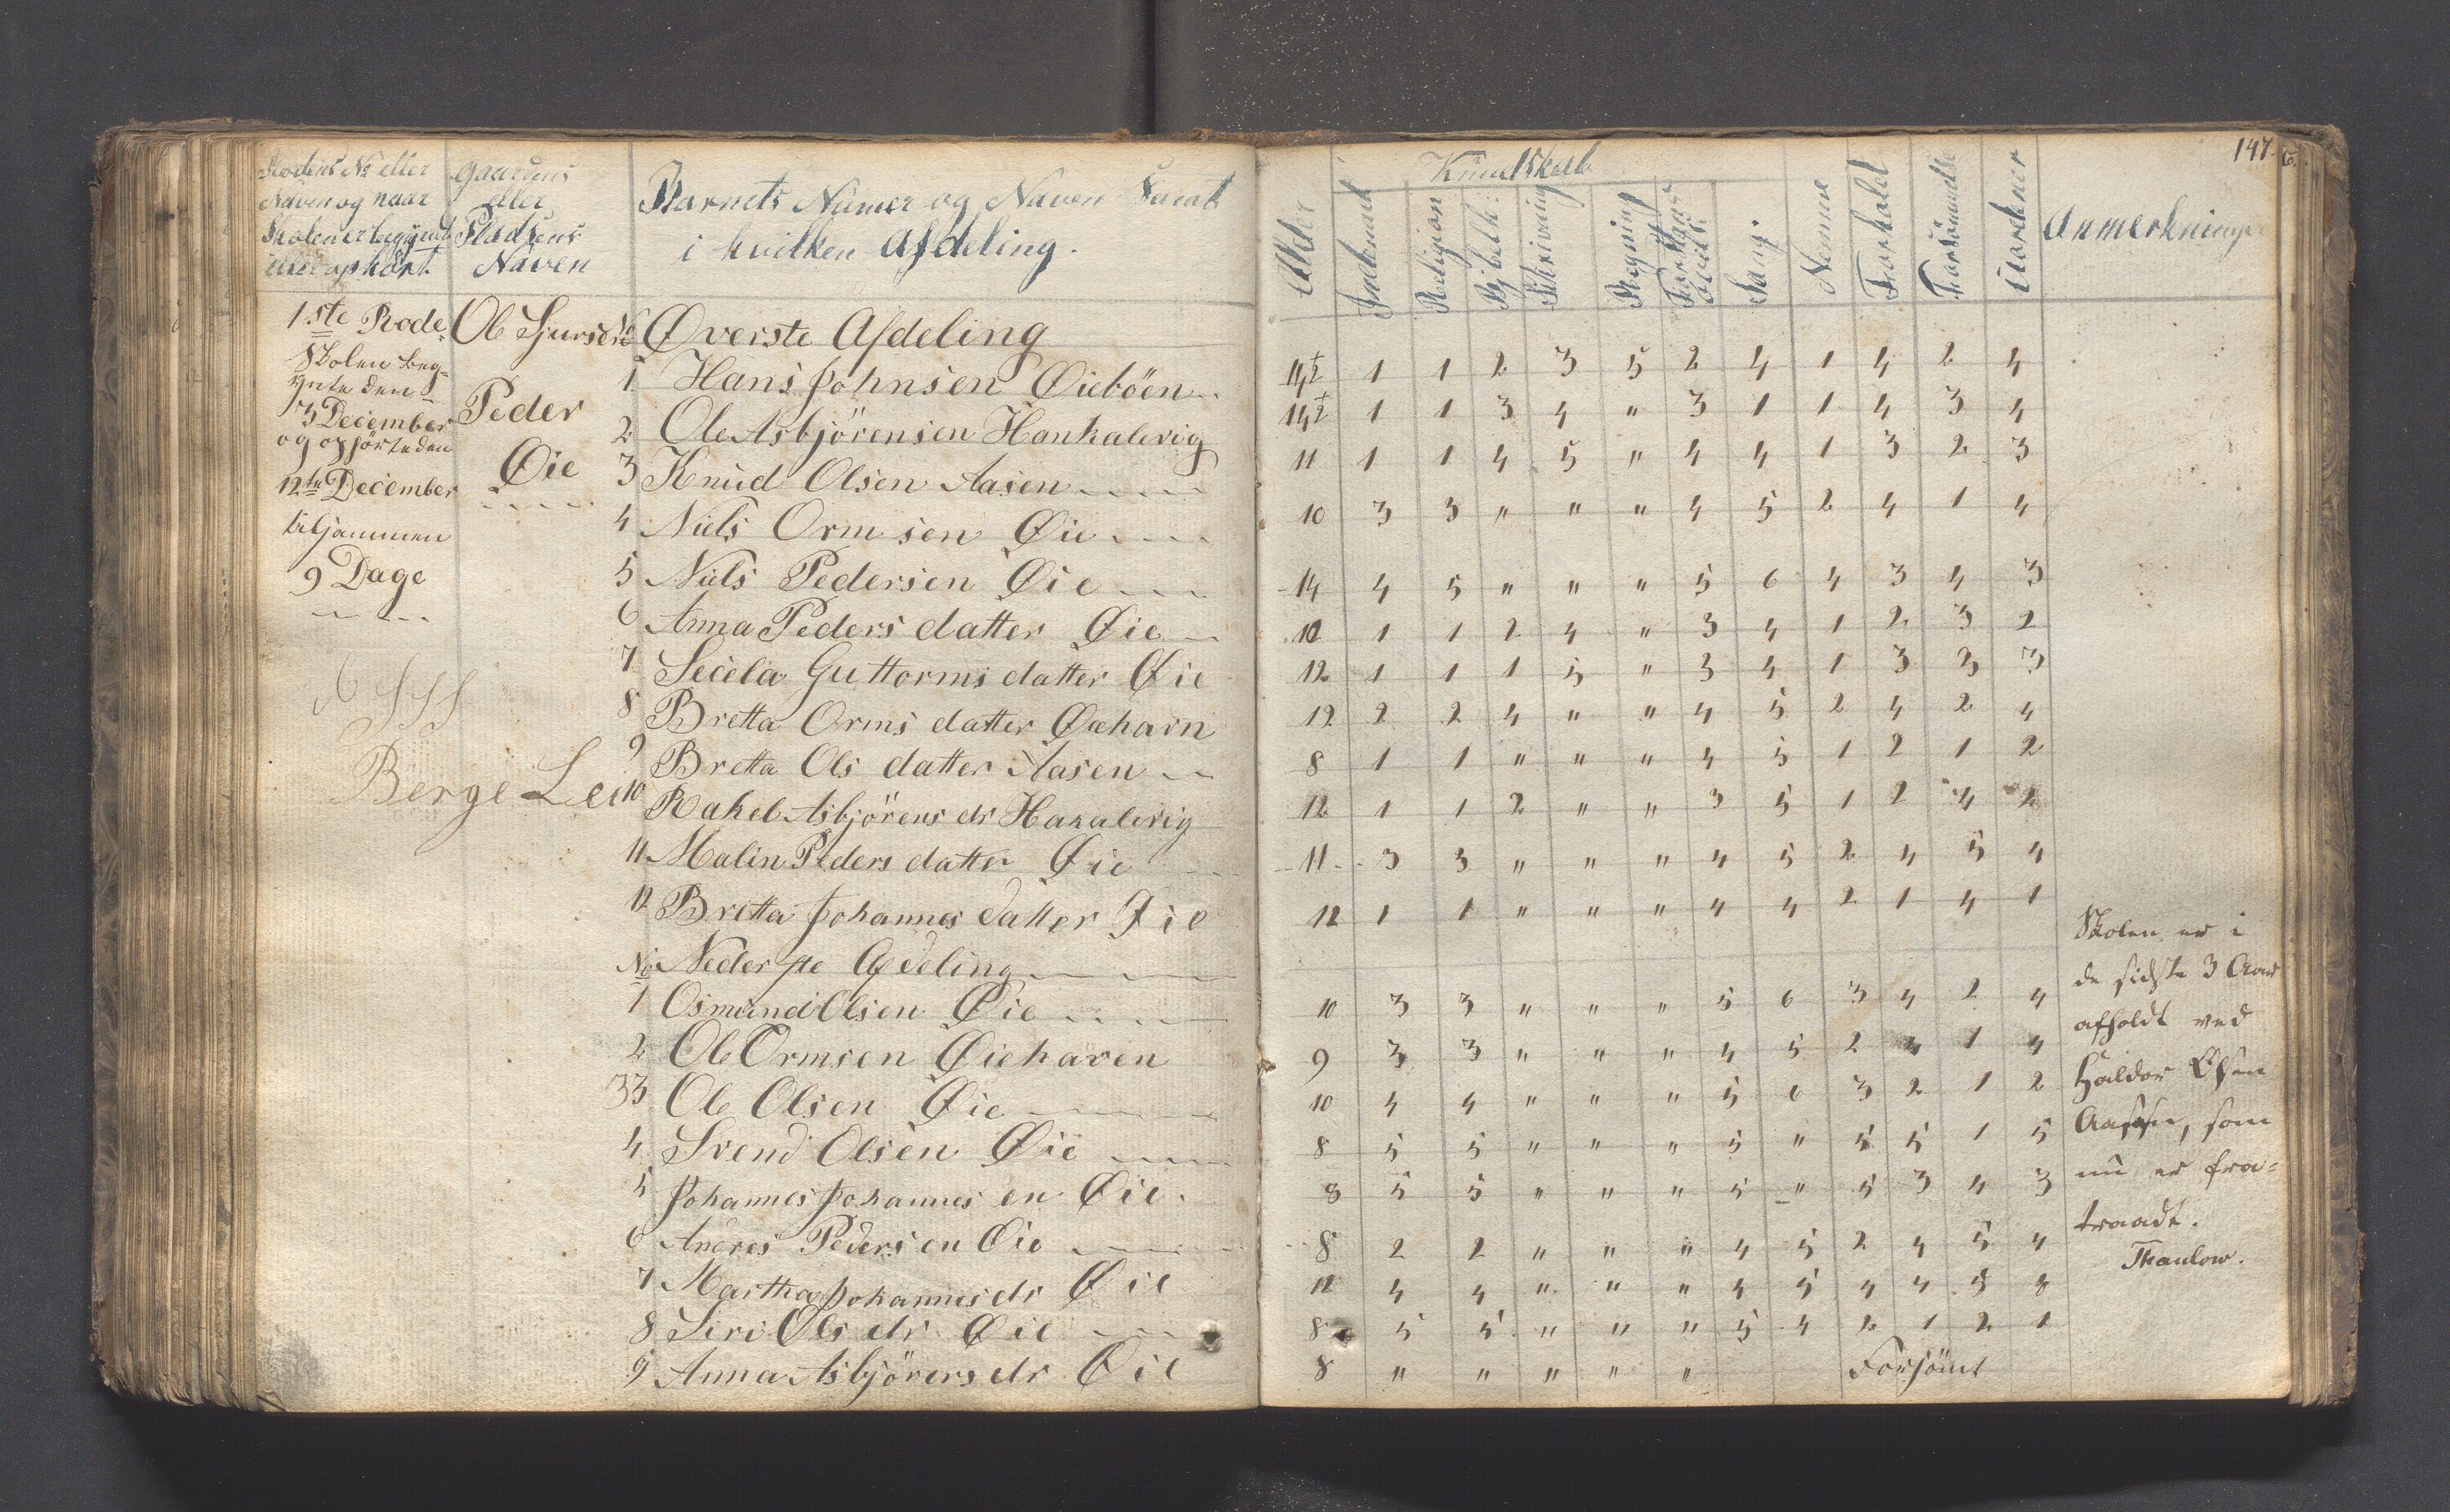 Rodens No eller
Naven og naar
Skolen er begyndt
eller ophørt.
Gaardens
eller
Pladsens
Naven
Barnets Numer og Naven Samt
i hvilken Afdeling.
1ste Rode
Skolen beg-
ynte den
3 December
og ophörte den
12te December
tilsammen
9 Dage
Ole Sjursen
Peder
Øie
Berge Lei
No Øverste Afdeling
1 Hans Johnsen Øiebøen
2 Ole Asbjörensen Hankalevig
3 Knud Olsen Aasen
4 Niels Ormsen Øie
5 Niels Pedersen Øie
6 Anna Peders datter Øie
7 Secela Guttorms datter Øie
8 Bretta Orms datter Øiehavn
9 Bretta Ols datter Aasen
10 Rakel Asbjörens dr Hakalevig
11 Malin Peders datter Øie
12 Bretta Johannes datter Øie
No Nederste Afdeling
1 Osmund Olsen Øie
2 Ole Ormsen Øiehaven
33 Ole Olsen Øie
4 Svend Olsen Øie
5 Johannes Johannesen Øie.
6 Andres Pedersen Øie
7 Martha Johannes dr Øie
8 Siri Ols dr Øie
9 Anna Asbjörens dr Øie
147
Kundskab
Alder
Indenad
Religion
Bibelh:
Skrivning
Regning
Forstands
Sang.
Nemme
Forhold
Forsömmelse
Anmerkninger
14½ 1 1 2 3 5 2 4 1 4 2 4
14½ 1 1 3 4 " 3 1 1 4 3 4
11 1 1 4 5 " 4 4 1 3 2 3
10 3 3 " " " 4 5 2 4 1 4
14 4 5 " " " 5 6 4 3 4 3
10 1 1 2 4 " 3 4 1 2 3 2
12 1 1 1 5 " 3 4 1 3 3 3
12 2 2 4 " " 4 5 2 4 2 4
8 1 1 " " " 4 5 1 2 1 2
12 1 1 2 " " 3 5 1 2 4 2
11 3 3 " " " 4 5 2 4 5 4
12 1 1 " " " 4 4 2 1 4 1
10 3 3 " " " 5 6 3 4 2 4
9 3 3 " " " 4 5 2 4 1 4
10 4 4 " " " 5 6 3 2 1 2
8 5 5 " " " 5 " 5 5 1 5
8 5 5 " " " 5 " 5 3 4 3
8 2 2 " " " 4 5 2 4 5 4
12 4 4 " " " 4 5 4 4 5
8 5 5 " " " 5 4 2 1 2 1
8 " " " " " Forsömt
Skolen er i
de sidste 3 Aar
afholdt ved
Haldor Olsen
Aasen, som
nu er fra=
traadt.
Thaulow.